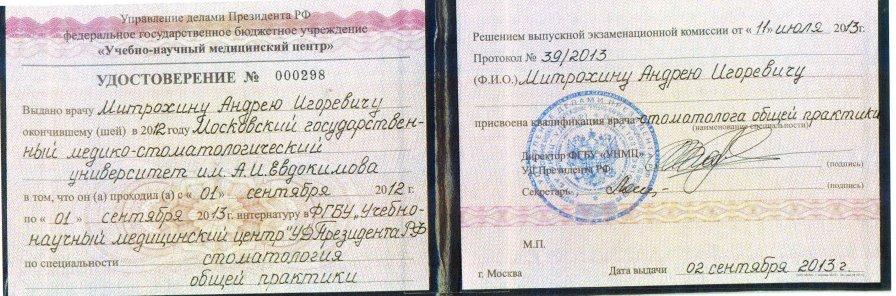 Управление делами Президента РФ
федеральное государственное бюджетное учреждение
«Учебно-научный медицинский центр»
УДОСТОВЕРЕНИЕ № 000298
Выдано врачу Митрохину Андрею Игоревичу
окончившему (шей) в 2012 году Московский государствен-
ный медико-стоматологический
университет им. А.И. Евдокимова
в том, что он (а) проходил (а) с « 01 » сентября 2012 г.
по « 01 » сентября 2013 г. интернатуру в ФГБУ „Учебно-
научный медицинский центр" УД Президента РФ
по специальности стоматология
общей практики
Решением выпускной экзаменационной комиссии от « 11 » июля 2013г.
Протокол № 39/2013
(Ф.И.О.) Митрохину Андрею Игоревичу
присвоена квалификация врача-стоматолога общей практики
(наименование специальности)
Директор ФГБУ «УНМЦ»
УД Президента РФ (подпись)
Секретарь (подпись)
М.П.
г. Москва Дата выдачи 02 сентября 2013 г.